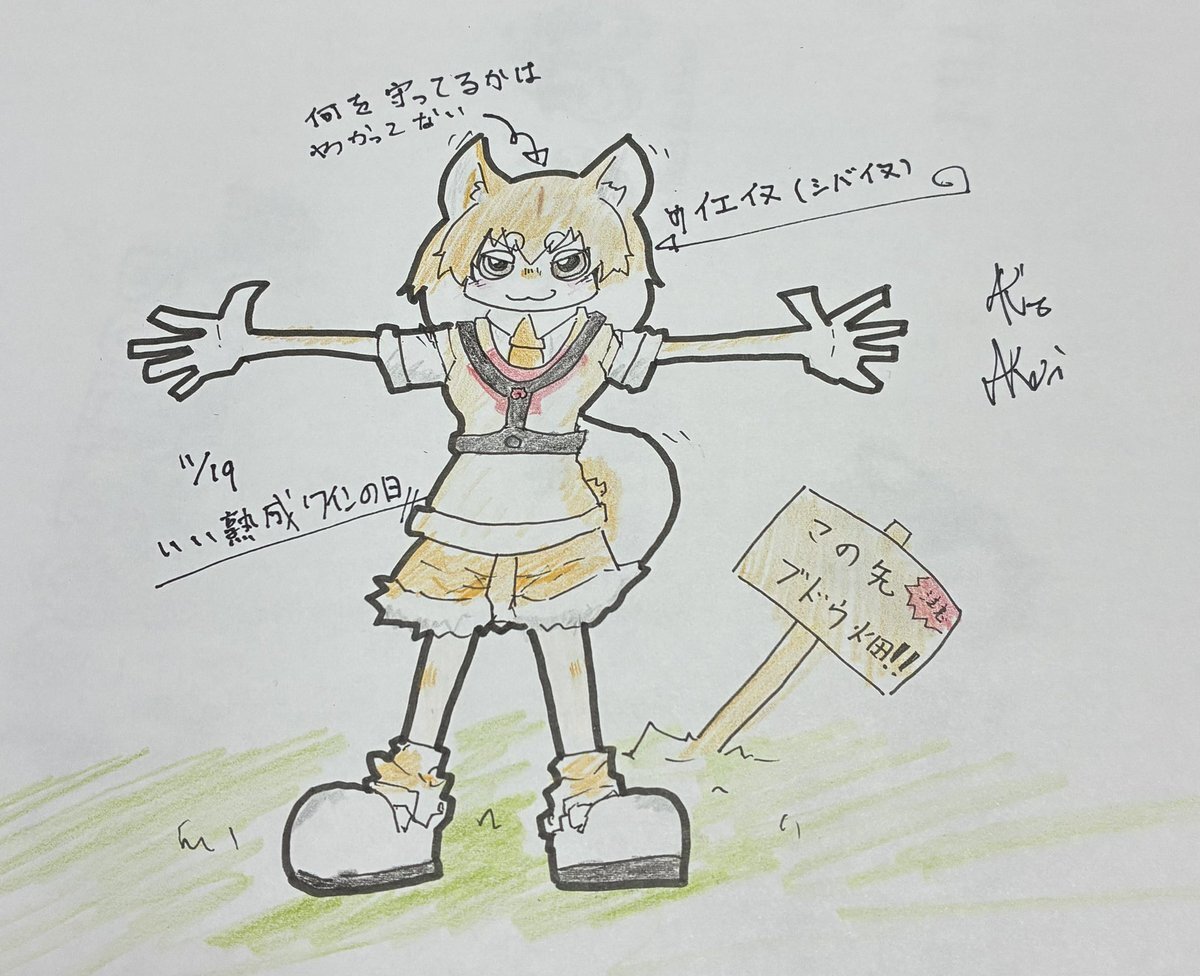 何を守ってるかは
わかってない
イエイヌ(シバイヌ)
11/19
いい熟成ワインの日
この先
ブドウ畑!!